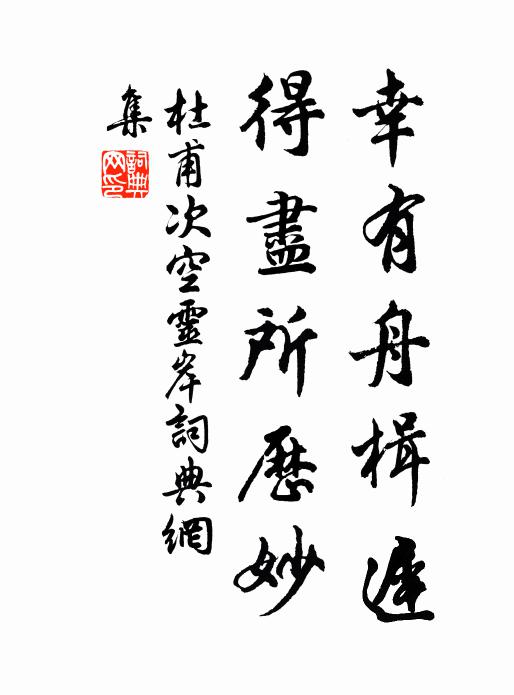 幸有舟楫遲
得盡所歷妙
杜甫次空靈岸詞典網
集
詞典
网印